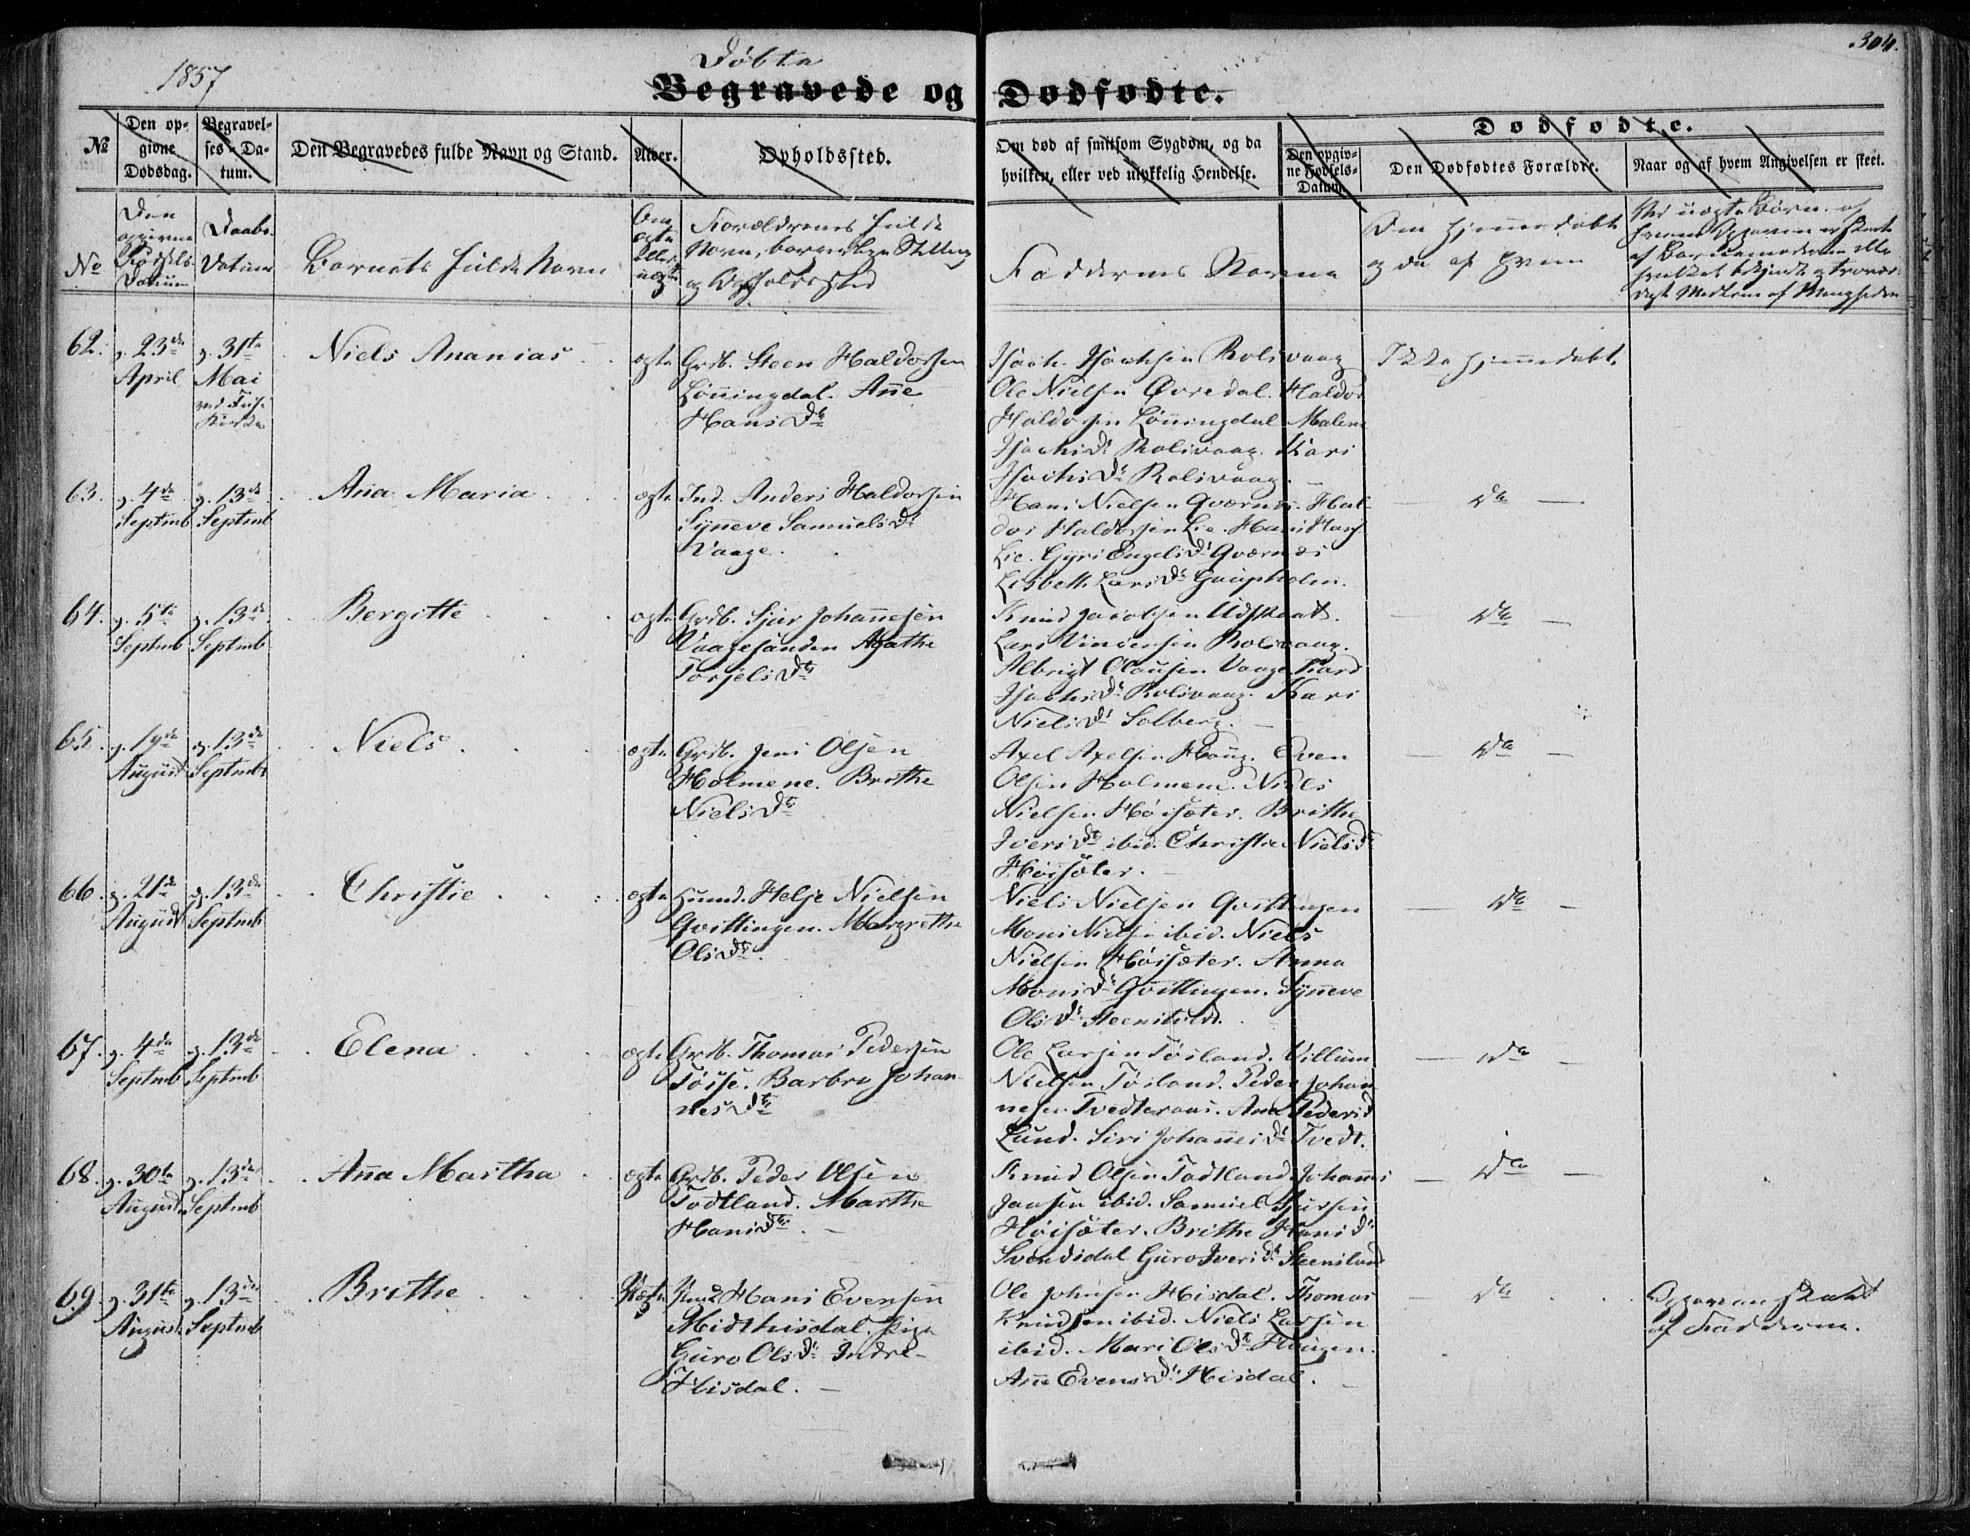 1857
Døbte
304.
Begravede og Dødfødte.
No
Den op-
givne
Dødsdag.
Begravel-
ses-Da-
tum.
Den Begravedes fulde Navn og Stand.
Alder.
Opholdssted.
Om død af smitsom Sygdom, og da
hvilken, eller ved ulykkelig Hendelse.
Dødfødte.
Den opgiv-
ne Fødsels-
Datum.
Den Dødfødtes Forældre.
Naar og af hvem Angivelsen er skeet.
No
Den
opgivne
Fødsels
Datum
Daabs
Datum
Barnets fulde Navn
Om
ægte
eller
uægte
Forældrenes fulde
Navn, borgerlige Stilling
og Opholdssted
Faddernes Navne
Om hjemmedøbt
og da af hvem
Ved uægte Børn, af
hvem Opgaven er skeet
af Barnemoderen eller
62.
g. 23de
April
g. 31te
Mai
Niels Ananias
ægte
Grdb. Steen Haldorsen
Lönningdal. Ane
Hans Dtr
Isach Isachsen Rolsvaag
Ole Nielsen Øvredal. Haldor
Haldorsen Lönningdal Malene
Isachs Dr Rolsvaag. Kari
Isachs Dr Rolsvaag.
Ikke hjemmedøbt.
63.
g. 4de
Septmb
g. 13de
Septmb
Ana Maria
ægte
Ind. Anders Haldorsen
Synneve Samuels Dr
Vaage.
Hans Nielsen Qværnes. Hal-
dor Haldorsen Lie. Hans Hans
Lie. Gyri Engels Dr Qværnes
Lisbeth Lars Dr Gaupholm.
Do
64.
g. 5te
Septmb
g. 13de
Septmb
Bergitte
ægte
Grdb. Sjur Johannesen
Vaagesanden Agathe
Torjels Dtr
Knud Jacobsen Udskaat.
Lars Vincensen Rolsvaag.
Albrigt Olausen Vaage Kari
Isachs Dr Rolsvaag. Kari
Niels Dr Solberg.
Do
65.
g. 19de
August
g. 13de
Septmbr
Niels
ægte
Grdb. Jens Olsen
Holmene. Brithe
Niels Dtr
Axel Axelsen Haug. Even
Olsen Holmene. Niels
Nielsen Höisæter. Brithe
Ivers Dtr ibid. Christie Niels Dr
Höisæter.
Do
66.
g. 21de
August
g. 13de
Septmb
Christie
ægte
Huusmd. Helje Nielsen
Qvittingen. Margrethe
Ols Dtr.
Niels Nielsen Qvittingen
Mons Nielsen ibid. Niels
Nielsen Höisæter. Anna
Mons Dr Qvittingen. Synneve
Ols Dr Steensland.
Do
67.
g. 4de
Septmb
g. 13de
Septmb
Elena
ægte
Grdb. Thomas Pedersen
Töise. Barbro Johan-
nes Dtr
Ole Larsen Tösland. Villum
Nielsen Tösland. Peder Johan-
nesen Tvedteraas. Ane Peders D
Lund. Siri Johannes Dr Tvedt.
Do
68.
g. 30te
August
g. 13de
Septmb
Ana Martha
ægte
Grdb. Peder Olsen
Todtland. Marthe
Hans Dtr.
Knud Olsen Todtland. Johannes
Jansen ibid. Samuel Sjursen
Höisæter. Brithe Hans Dr
Svendsdal Guro Ivers Dr Steensland
Do
69.
g. 31te
August
g. 13de
Septmb
Brithe
Uægte
Hans Evensen
Midthisdal. Pige
Guro Ols Dr Indre-
Hisdal.
Ole Johnsen Hisdal. Thomas
Knudsen ibid. Niels Larsen
ibid. Mari Ols Dtr Haugen.
Ane Evens Dr Hisdal.
Do
Opgaven skeet
af Fadderne.